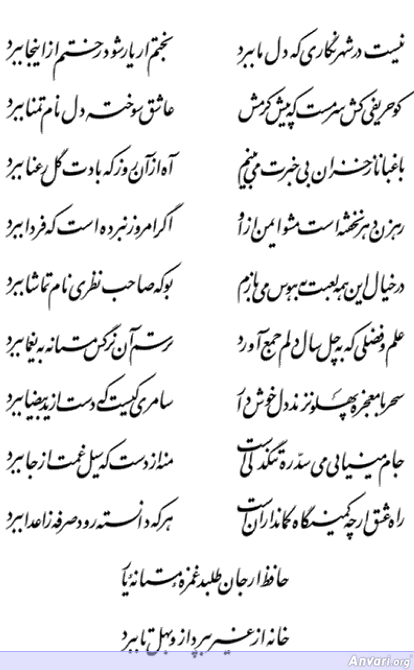 نیست در شهر نگاری که دل ما ببرد    بختم ار یار شود رختم از اینجا ببرد
کو حریفی کش سرمست که پیش کرمش    عاشق سوخته دل نام تمنا ببرد
باغبانا ز خزان بی خبرت می بینم    آه از آن روز که بادت گل رعنا ببرد
رهزن دهر نخفته است مشو ایمن از او    اگر امروز نبرده است که فردا ببرد
در خیال این همه لعبت به هوس می بازم    بو که صاحب نظری نام تماشا ببرد
علم و فضلی که به چل سال دلم جمع آورد    ترسم آن نرگس مستانه به یغما ببرد
سحر با معجزه پهلو نزند دل خوش دار    سامری کیست که دست از ید بیضا ببرد
جام مینایی می سدّ ره تنگدلی است    منه از دست که سیل غمت از جا ببرد
راه عشق ار چه کمینگاه کمانداران است    هر که دانسته رود صرفه ز اعدا ببرد
حافظ ار جان طلبد غمزهٔ مستانهٔ یار
خانه از غیر بپرداز و بهل تا ببرد
Anvari.org